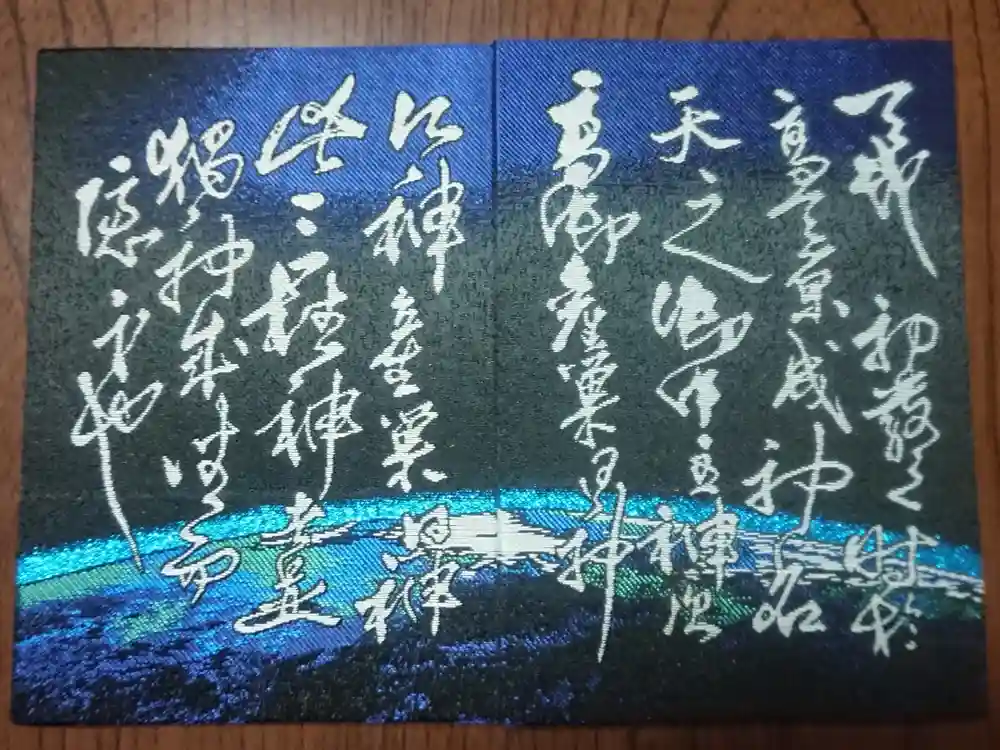 天地初發之時於
高天原成神名
天之御中主神次
高御產巢日神
次神產巢日神
此三柱神者並
獨神成坐而
隱身也